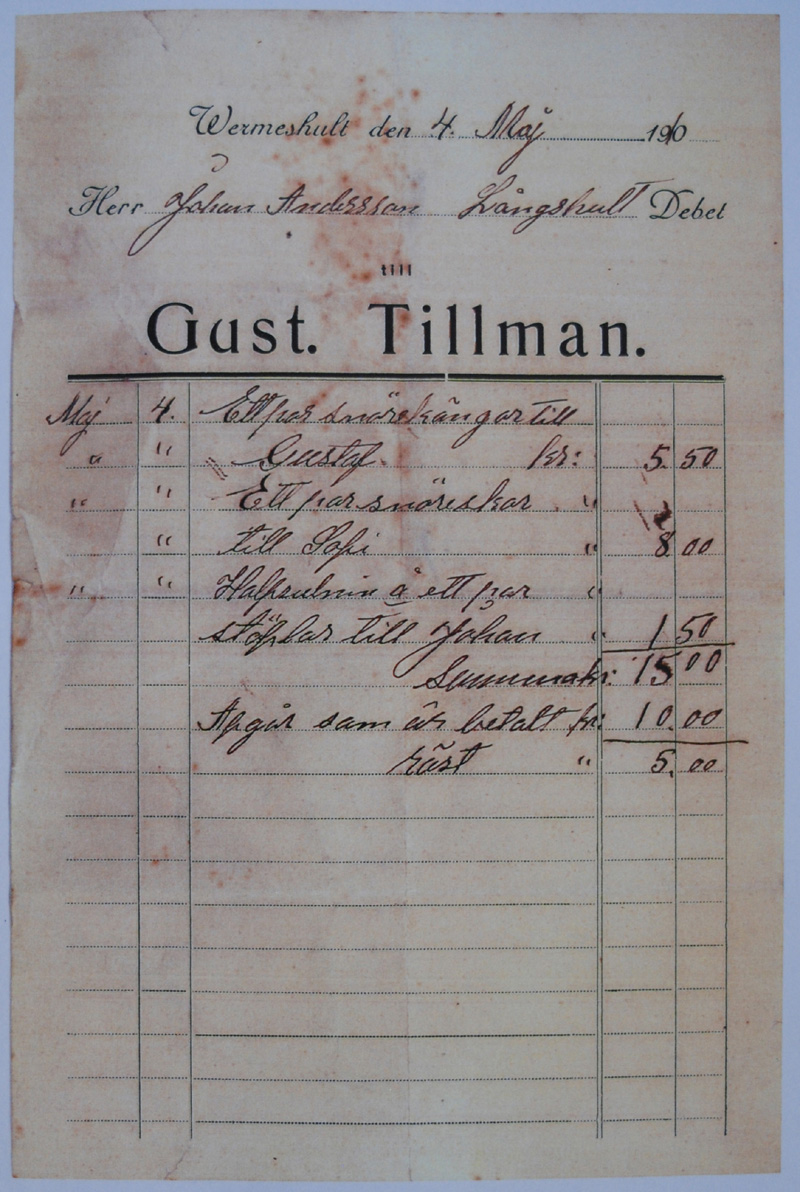 Wermeshult den 4. Maj 1910
Herr Johan Andersson Långshult Debet
till
Gust. Tillman.
Maj 4. Ett par snörekängor till
" " Gustaf. kr: 5. 50
" " Ett par snöreskor "
" till Sofi " 8. 00
" " Halfsulnin å ett par "
stöflar till Johan " 1 50
Summa kr: 15 00
Afgår som är betalt kr: 10. 00
räst " 5. 00